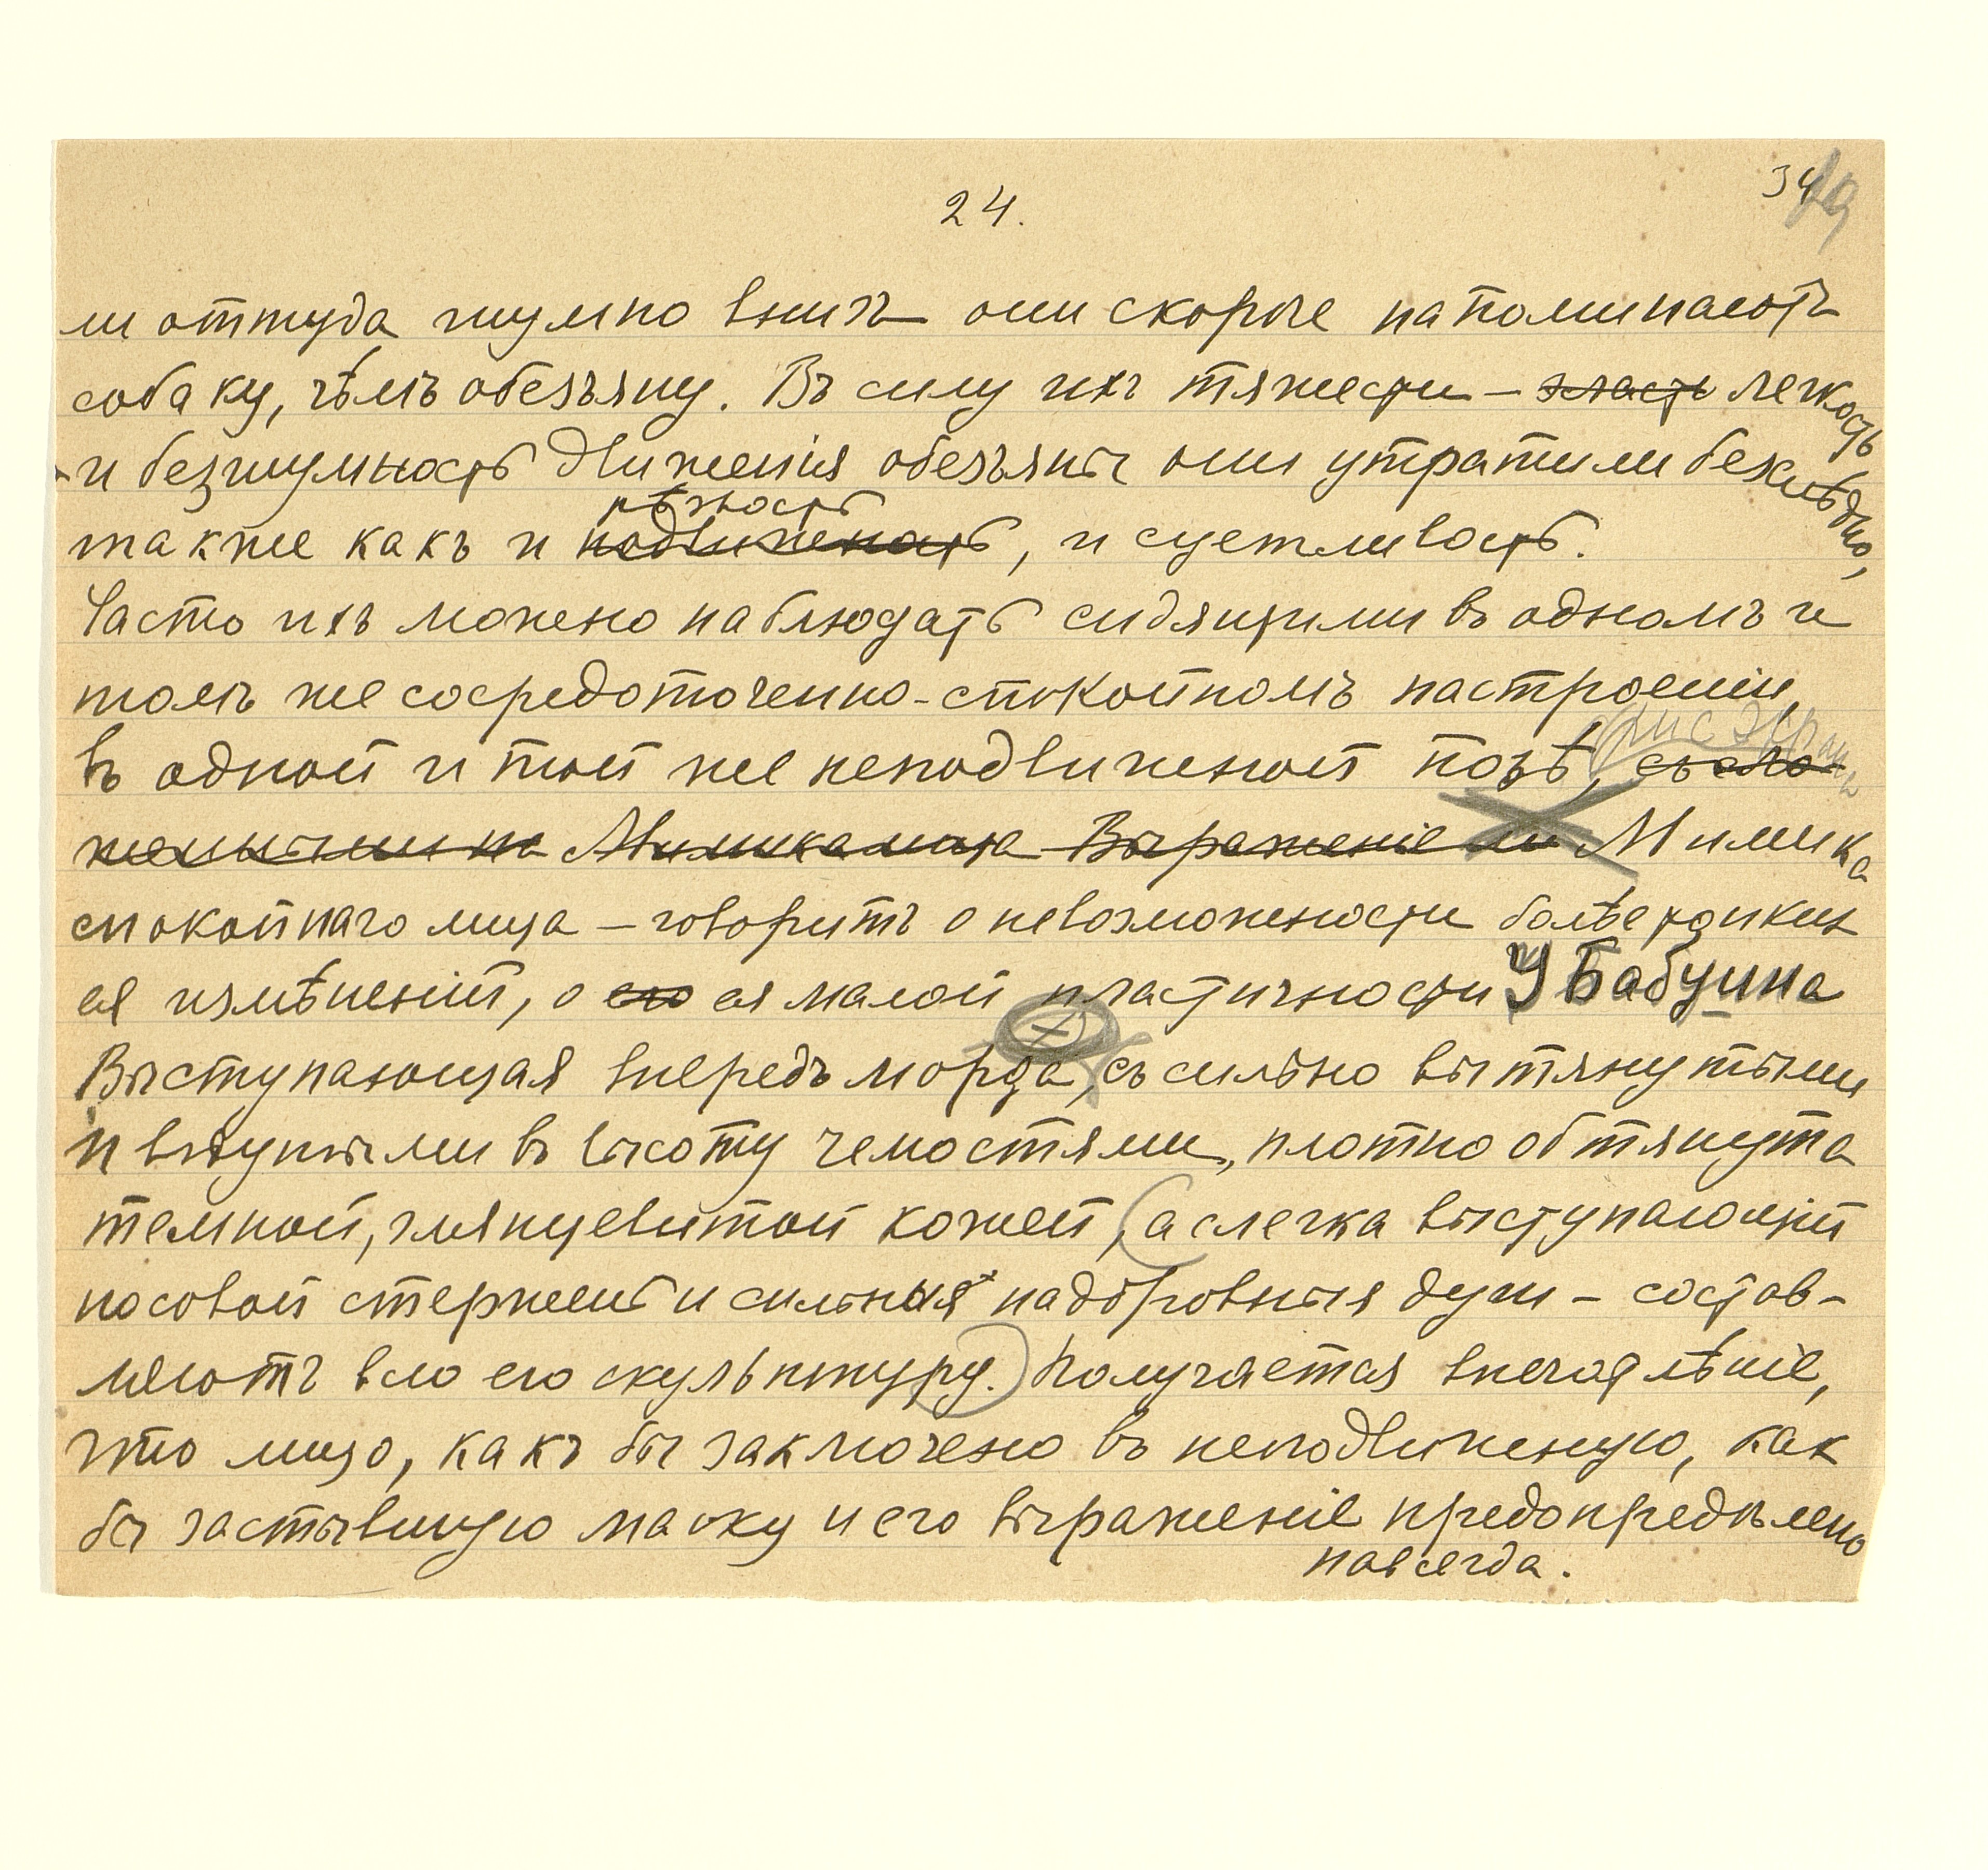 24.
34
19
ли оттуда шумно внизъ они скорѣе напоминаютъ
собаку, чѣмъ обезъяну. Въ силу ихъ тяжести – легкость
и безшумность движенія обезъянъ они утратили безслѣдно,
рѣзвость
также какъ и подвижность, и суетливость.
Часто ихъ можно наблюдать сидящими въ одномъ и
томъ же сосредоточенно-спокойномъ настроеніи,
въ одной и той же неподвижной позѣ, съ сло-
женными на Мимика лица Выраженіе Мимика
спокойнаго лица – говоритъ о невозможности болѣе тонких
ея измѣненій, о его ея малой пластичности У Бабуина
Выступающая впередъ морда, съ сильно вытянутыми
и вздутыми въ высоту челюстями, плотно обтянута
темной, глянцевитой кожей, (а слегка выступающій
носовой стержень и сильныя надбровныя дуги – состав-
ляютъ всю его скульптуру.) Получается впечатлѣніе,
что лицо, какъ бы заключено въ неподвижную, как
бы застывшую маску и его выраженіе предопредѣлено
навсегда.